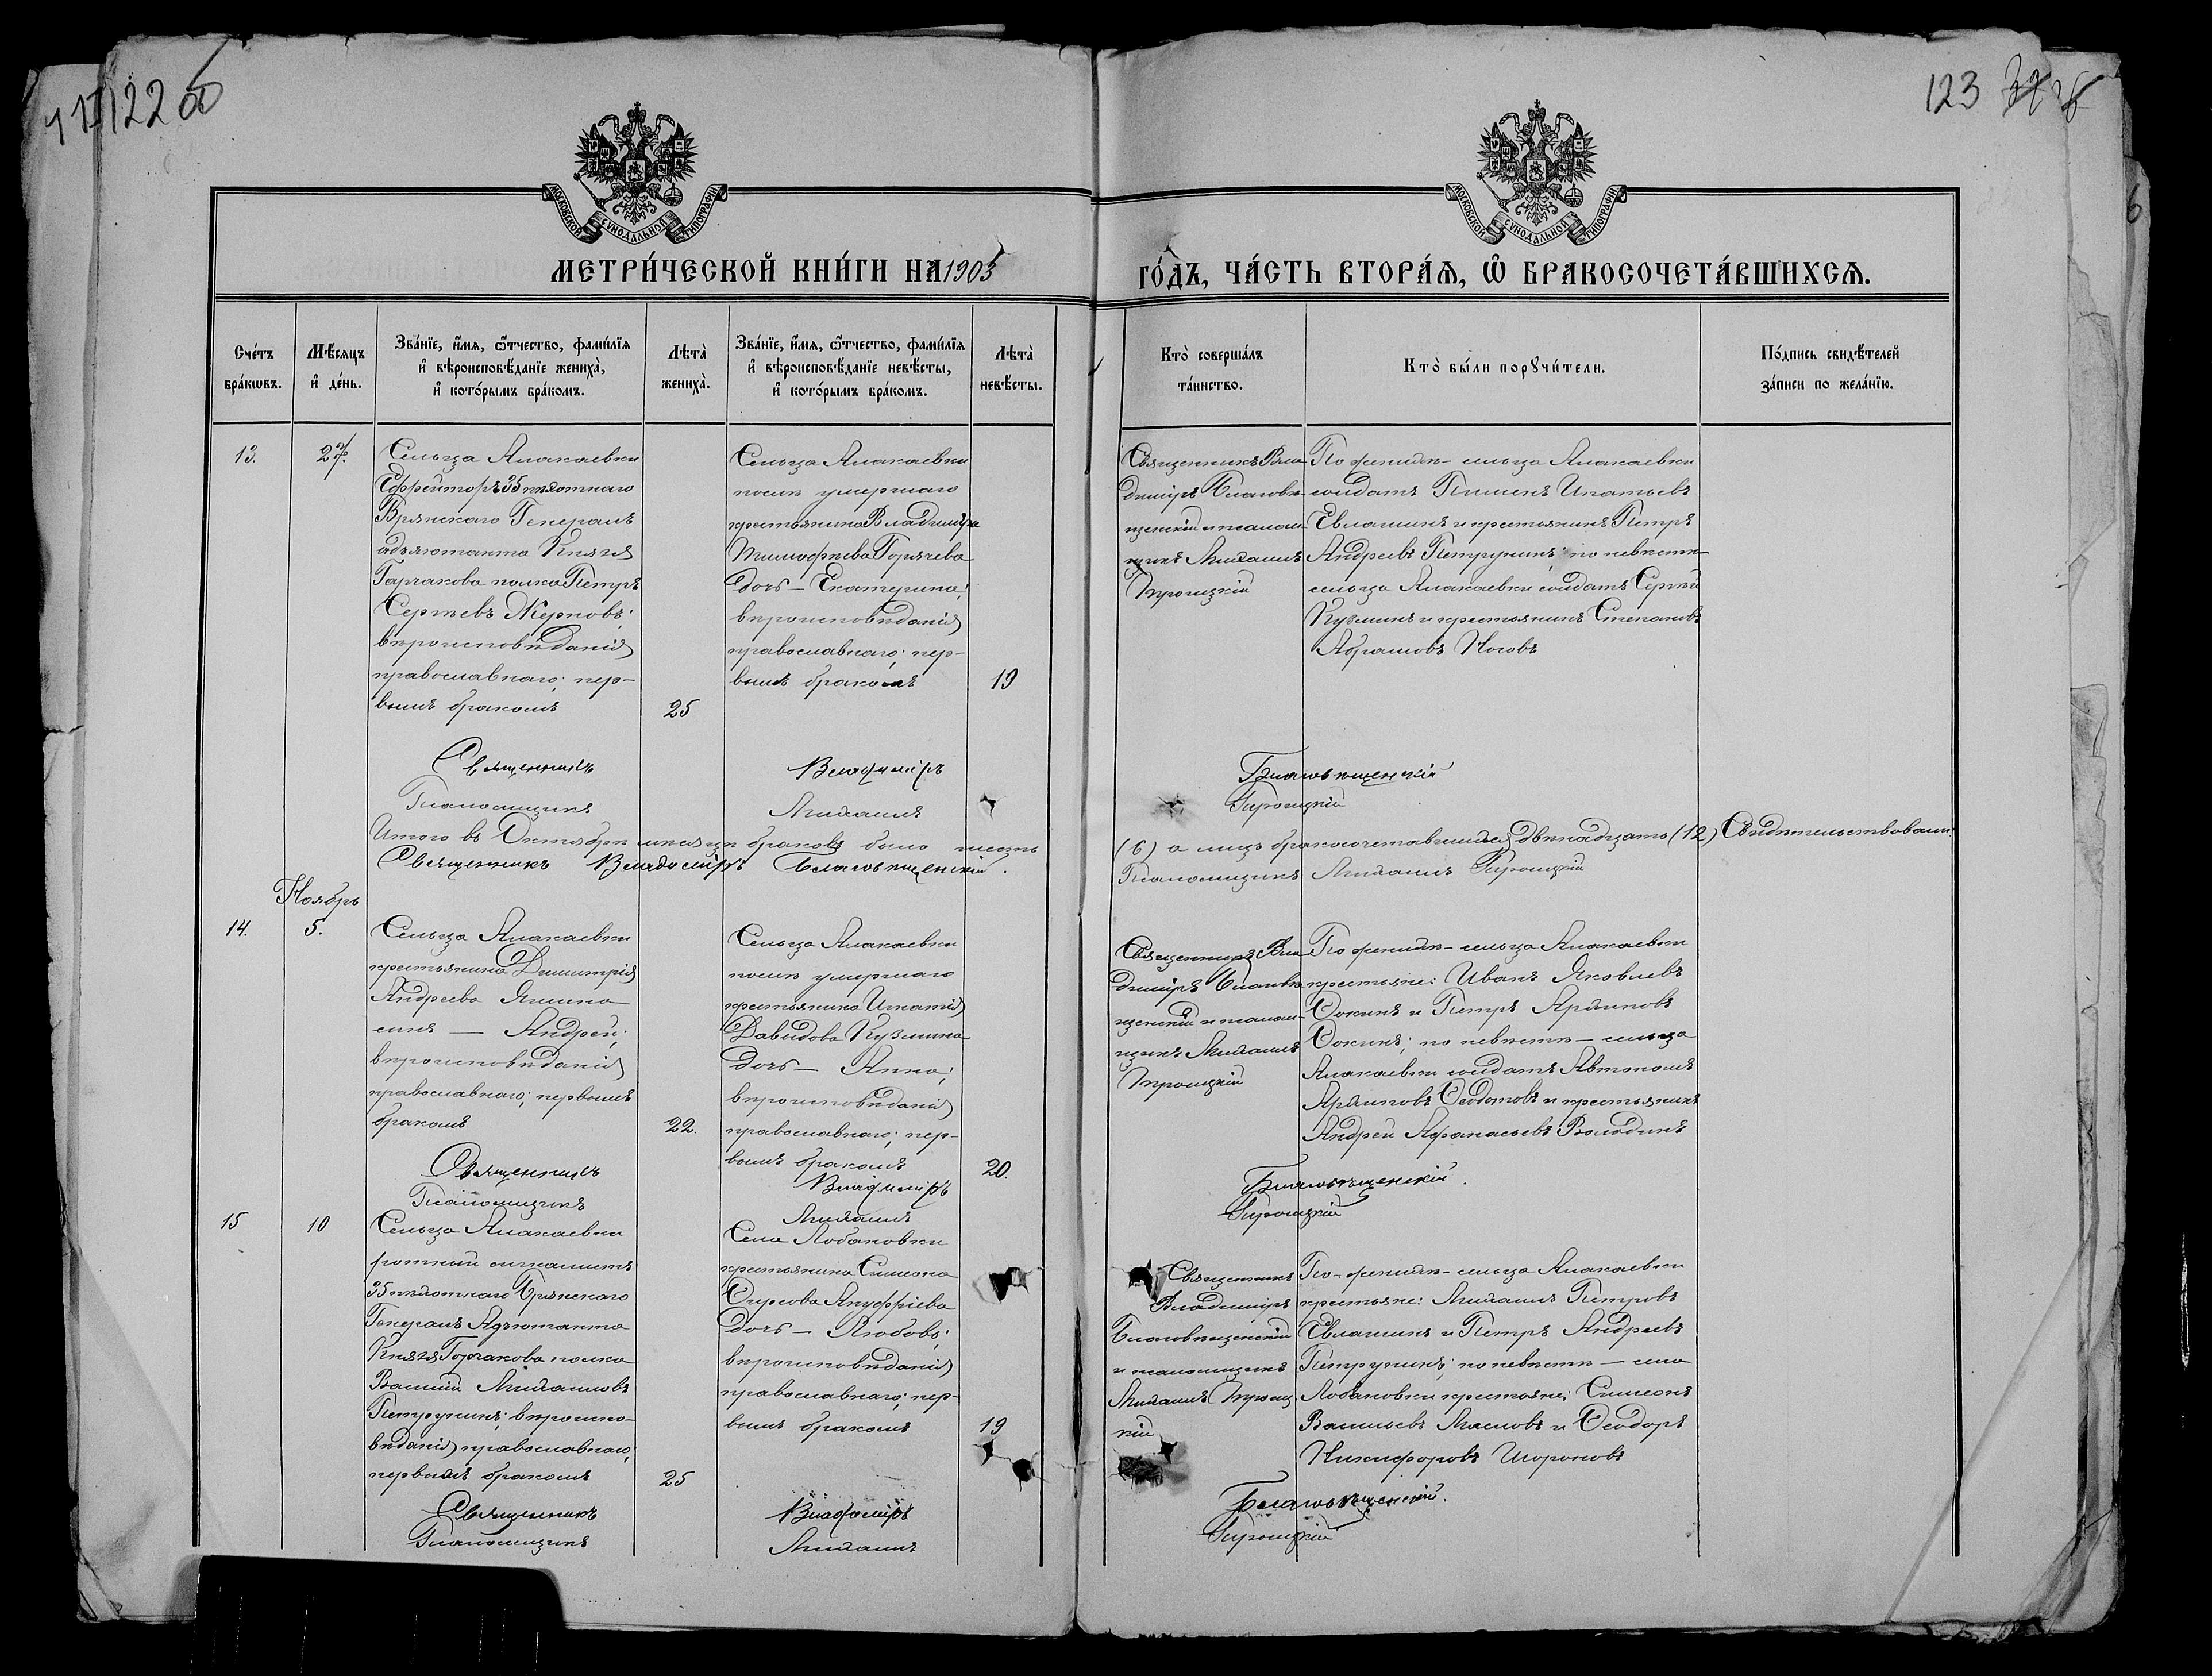 122
123
МОСКОВСКОЙ СУНОДАЛЬНОЙ ТИПОГРАФІИ
МОСКОВСКОЙ СУНОДАЛЬНОЙ ТИПОГРАФІИ
МЕТРИ́ЧЕСКОЙ КНИ́ГИ НА 1905
ГО́ДЪ, ЧА́СТЬ ВТОРА́Ѧ, Ѡ҆ БРАКОСОЧЕТА́ВШИХСѦ.
Сче́тъ
бра́кѡвъ.
Мѣ́сѧцъ
и҆ де́нь.
Зва́нїе, и҆́мѧ, ѻ҆́тчество, фами́лїѧ
и҆ вѣроисповѣ́данїе жениха̀,
и҆ кото́рымъ бра́комъ.
Лѣта̀
жениха̀.
Зва́нїе, и҆́мѧ, ѻ҆́тчество, фами́лїѧ
и҆ вѣроисповѣ́данїе невѣ́сты,
и҆ кото́рымъ бра́комъ.
Лѣта̀
невѣ́сты.
Кто̀ соверша́лъ
та́инство.
Кто̀ бы́ли порꙋчи́тели.
По́дпись свидѣ́телей
за́писи по жела́нїю.
13.
27.
Сельца Алакаевки
Ефрейторъ 35 пѣхотнаго
Брянскаго Генералъ
адъютанта Князя
Гарчакова полка Петръ
Сергѣевъ Жерновъ;
вѣроисповѣданія
православнаго; пер-
вымъ бракомъ
25
Сельца Алакаевки
послѣ умершаго
крестьянина Владимира
Тимофѣева Горячева
дочь – Екатерина;
вѣроисповѣданія
православнаго; пер-
вымъ бракомъ
19
Священникъ Вла-
диміръ Благовѣ-
щенскій и псалом-
щикъ Михаилъ
Троицкій
По женихѣ – сельца Алакаевки
солдатъ Пименъ Ипатьевъ
Евлашинъ и крестьянинъ Петръ
Андреевъ Петрунинъ; по невѣстѣ –
сельца Алакаевки солдатъ Сергѣй
Кузминъ и крестьянинъ Степановъ
Абрамовъ Носовъ
Священникъ Владиміръ Благовѣщенскій
Псаломщикъ Михаилъ Троицкій
Итого въ Октябрѣ мѣсяцѣ браковъ было шесть
(6) а лицъ бракосочетавшихся двѣнадцать (12) Свидѣтельствовали
Священникъ Владиміръ Благовѣщенскій.
Псаломщикъ Михаилъ Троицкій
Ноябрь
14.
5.
Сельца Алакаевки
крестьянина Димитрія
Андреева Яшина
сынъ – Андрей;
вѣроисповѣданія
православнаго; первымъ
бракомъ
22.
Сельца Алакаевки
послѣ умершаго
крестьянина Игнатія
Давыдова Кузмина
дочь – Анна;
вѣроисповѣданія
православнаго; пер-
вымъ бракомъ
20.
Священникъ Вла-
диміръ Благовѣ-
щенскій и псалом-
щикъ Михаилъ
Троицкій
По женихѣ – сельца Алакаевки
крестьяне: Иванъ Яковлевъ
Фокинъ и Петръ Архиповъ
Фокинъ; по невѣстѣ – сельца
Алакаевки солдатъ Автономъ
Архиповъ Ѳедотовъ и крестьянинъ
Андрей Афанасьевъ Володинъ
Священникъ Владиміръ Благовѣщенскій.
Псаломщикъ Михаилъ Троицкій
15
10
Сельца Алакаевки
ротный сигналистъ
35 пѣхотнаго Брянскаго
Генералъ Адъютанта
Князя Горчакова полка
Василій Михаиловъ
Петрунинъ; вѣроиспо-
вѣданія православнаго;
первымъ бракомъ
25
Села Лобановки
крестьянина Симеона
Фирсова Ануфріева
дочь – Любовь;
вѣроисповѣданія
православнаго; пер-
вымъ бракомъ
19
Священникъ
Владиміръ
Благовѣщенскій
и псаломщикъ
Михаилъ Троиц-
кій
По женихѣ – сельца Алакаевки
крестьяне: Михаилъ Петровъ
Евлашинъ и Петръ Андреевъ
Петрунинъ; по невѣстѣ – села
Лобановки крестьяне: Симеонъ
Васильевъ Масловъ и Ѳеодоръ
Никифоровъ Шороновъ
Священникъ Владиміръ Благовѣщенскій.
Псаломщикъ Михаилъ Троицкій